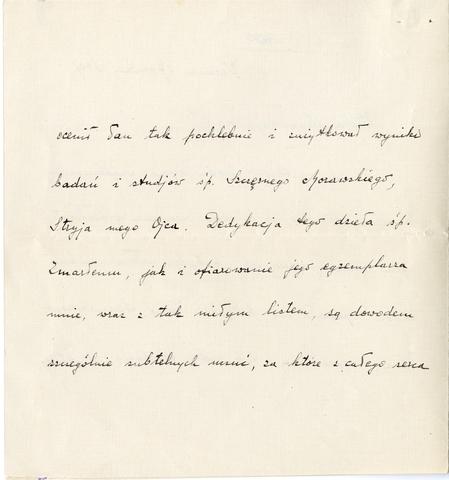 ocenił Pan tak pochlebnie i zużytkował wyniki
badań i studjów śp. Szczęsnego Morawskiego,
Stryja mego Ojca. Dedykacja tego dzieła śp.
Zmarłemu, jak i ofiarowanie jego egzemplarza
mnie, wraz z tak miłym listem, są dowodem
szczególnie subtelnych uczuć, za które z całego serca